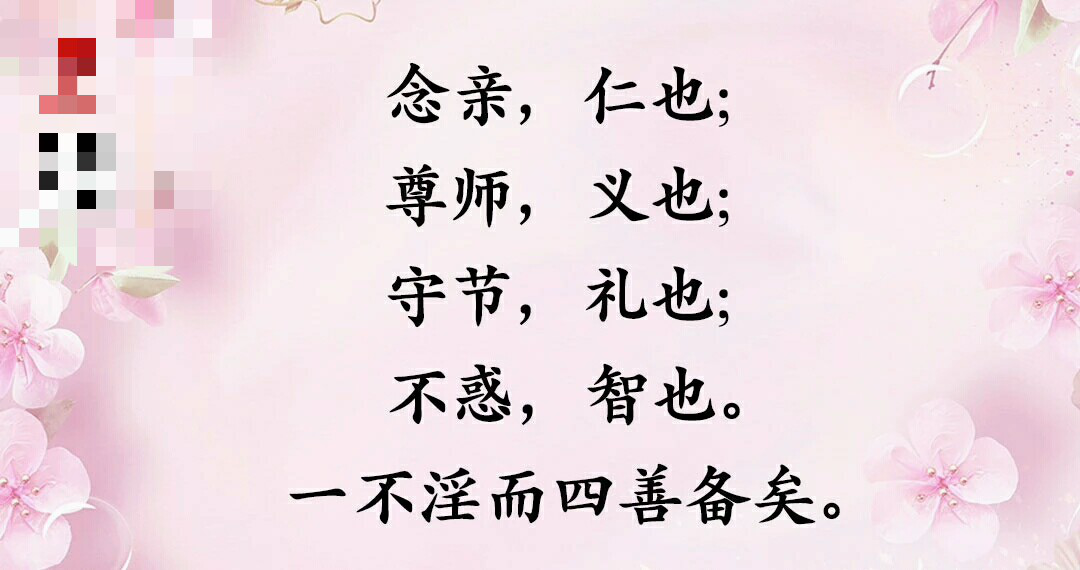 念亲，仁也;
尊师，义也;
守节，礼也;
不惑，智也。
一不淫而四善备矣。